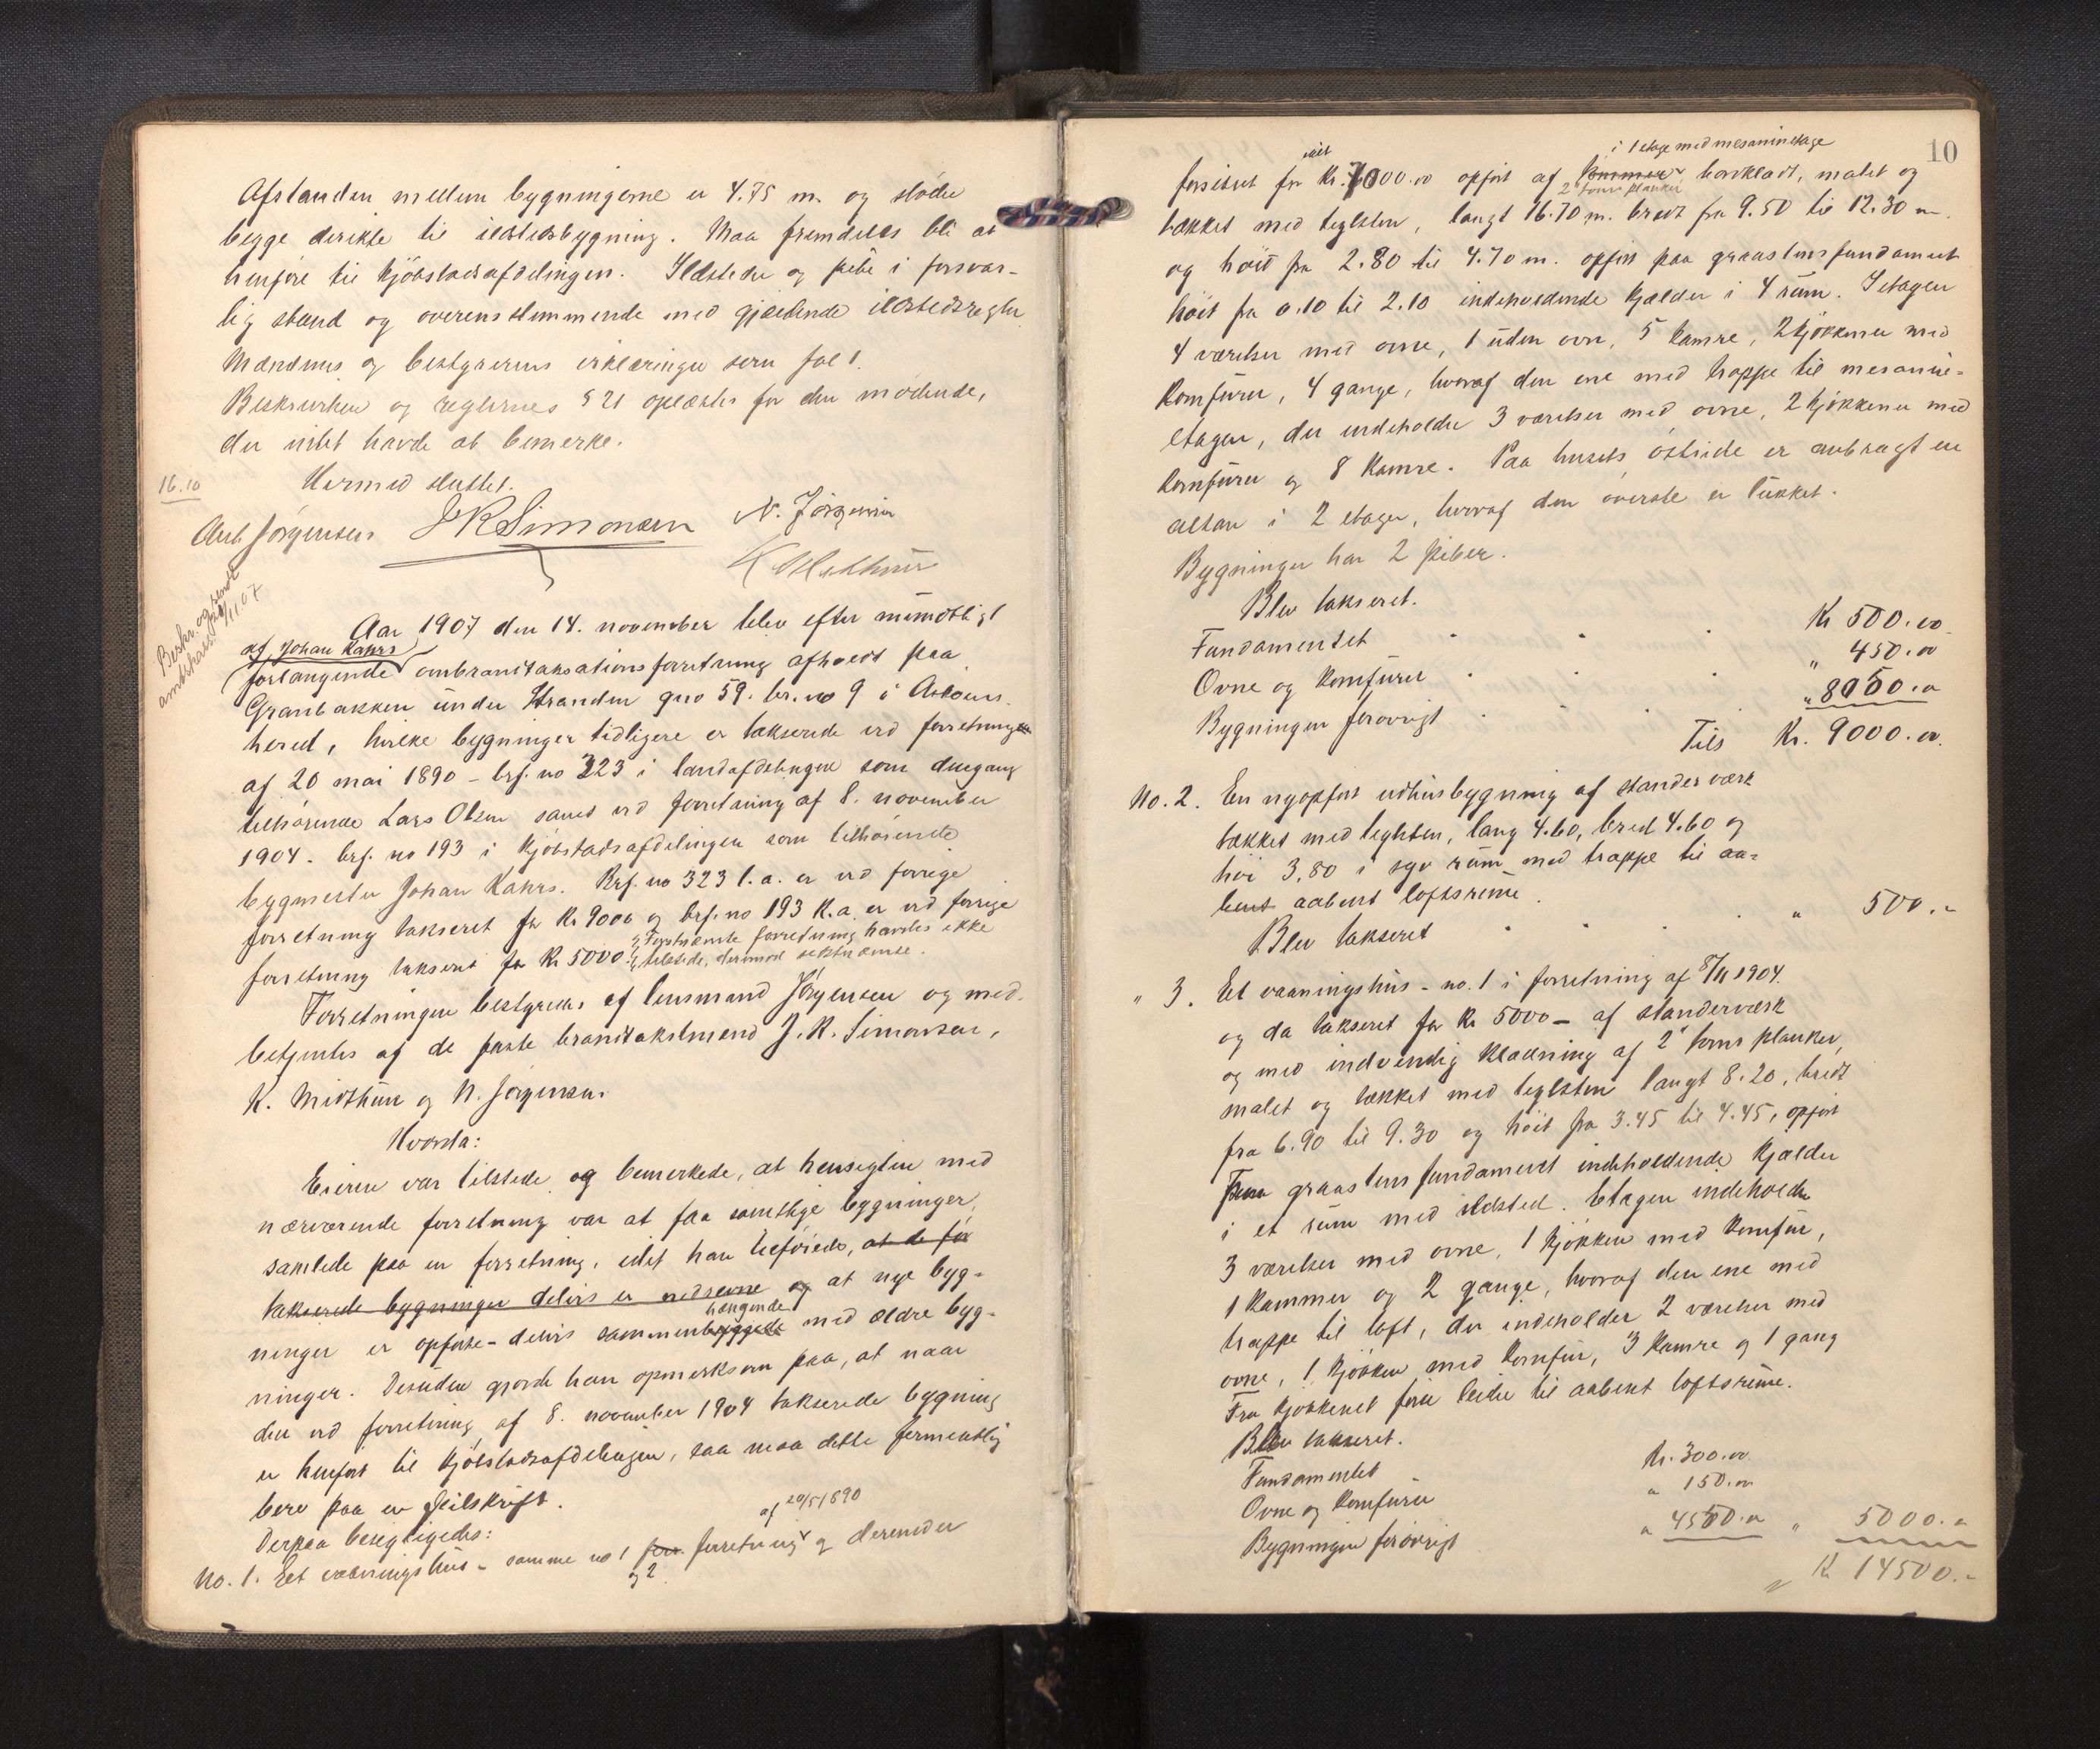 Afstanden mellem bygningerne er 4.75 m. og støder
begge direkte til ildstedsbygning. Maa fremdeles bli at
henføre til kjøbstadsafdelingen. Ildsteder og pibe i forsvar-
lig stand og overensstemmende med gjældende ildstedsregler
Mændenes og bestyrerens erklæringer som fol 1.
Beskrivelsen og reglernes § 21 oplæstes for den mødende,
der intet havde at bemerke.
16.10
Hermed sluttet.
Ant Jørgensen J R Simonsen N. Jørgensen
K Midthun
Beskr. og sendt
amtskass. 20/11 07
Aar 1907 den 14. november blev efter mundtligt
af Johan Kahrs
forlangende ombrandtaksationsforretning afholdt paa
Granbakken under Stranden gno 59. br. no 9 i Askøens
hered, hvilke bygninger tidligere er takserede ved forretninger
af 20 mai 1890 - brf. no 323 i landafdelingen som dengang
tilhørende Lars Olsen samt ved forretning af 8. november
1904 - brf. no 193 i kjøbstadsafdelingen som tilhørende
bygmester Johan Kahrs. Brf. no 323 l. a. er ved forrige
forretning takseret for Kr 9000 og brf. no 193 K. a. er ved forrige
forretning takseret for Kr 5000. Førstnævnte forretning havdes ikke
tilstede, derimod sidstnævnte.
Forretningen bestyredes af lensmand Jørgensen og med-
betjentes af de faste brandtakstmænd J. R. Simonsen,
K. Midthun og N. Jørgensen.
Hvorda:
Eieren var tilstede og bemerkede, at hensigten med
nærværende forretning var at faa samtlige bygninger
samlede paa en forretning, idet han tilføiede, at de før
takserede bygninger delvis er nedrevne og at nye byg-
hængende
ninger er opførte - delvis sammenbyggede med ældre byg-
ninger. Desuden gjorde han opmerksom paa, at naar
den ved forretning af 8. november 1904 takserede bygning
er henført til kjøbstadsafdelingen, saa maa dette formentlig
bero paa en feilskrift.
Derpaa besigtigedes:
af 20/5 1890
No. 1. Et vaaningshus - samme no 1 forr. forretning og derunder
og 2
10
i 1 etage med mesaninetage
idet
forsikret for Kr. 7000.00 opført af tømmer bordklædt, malet og
2" toms planker
tækket med teglsten, langt 16.70 m. bredt fra 9.50 til 12.30 m.
og høit fra 2.80 til 4.70 m. opført paa graastensfundament
høit fra 0.10 til 2.10 indeholdende kjælder i 4 rum. I etagen
4 værelser med ovne, 1 uden ovn, 5 kamre, 2 kjøkkener med
komfurer, 4 gange, hvoraf den ene med trappe til mesanin-
etagen, der indeholder 3 værelser med ovne, 2 kjøkkener med
komfurer og 8 kamre. Paa husets østside er anbragt en
altan i 2 etager, hvoraf den øverste er lukket.
Bygningen har 2 piber.
Blev takseret.
Fundamentet Kr 500.00
Ovne og komfurer " 450.00
Bygningen forøvrigt " 8050.00
Tils Kr. 9000.00.
No. 2. En nyopført udhusbygning af standerværk
tækket med teglsten, lang 4.60, bred 4.60 og
høi 3.80 i syv rum med trappe til aa-
bent aabent loftsrum.
Blev takseret " 500.-
" 3. Et vaaningshus - no. 1 i forretning af 8/11 1904.
og da takseret for Kr 5000 - af standerværk
og med indvendig klædning af 2" toms planker,
malet og tækket med teglsten langt 8.20, bredt
fra 6.90 til 9.30 og høit fra 3.45 til 4.45, opført
paa graastensfundament indeholdende kjælder
i et rum med ildsted. Etagen indeholder
3 værelser med ovne, 1 kjøkken med komfur,
1 kammer og 2 gange, hvoraf den ene med
trappe til loft, der indeholder 2 værelser med
ovne, 1 kjøkken med komfur, 3 kamre og 1 gang
Fra kjøkkenet fører leider til aabent loftsrum.
Blev takseret.
Fundamentet Kr. 300.00
Ovne og komfurer " 150.00
Bygningen forøvrigt " 4550.00 " 5000.-
Kr 14500.-